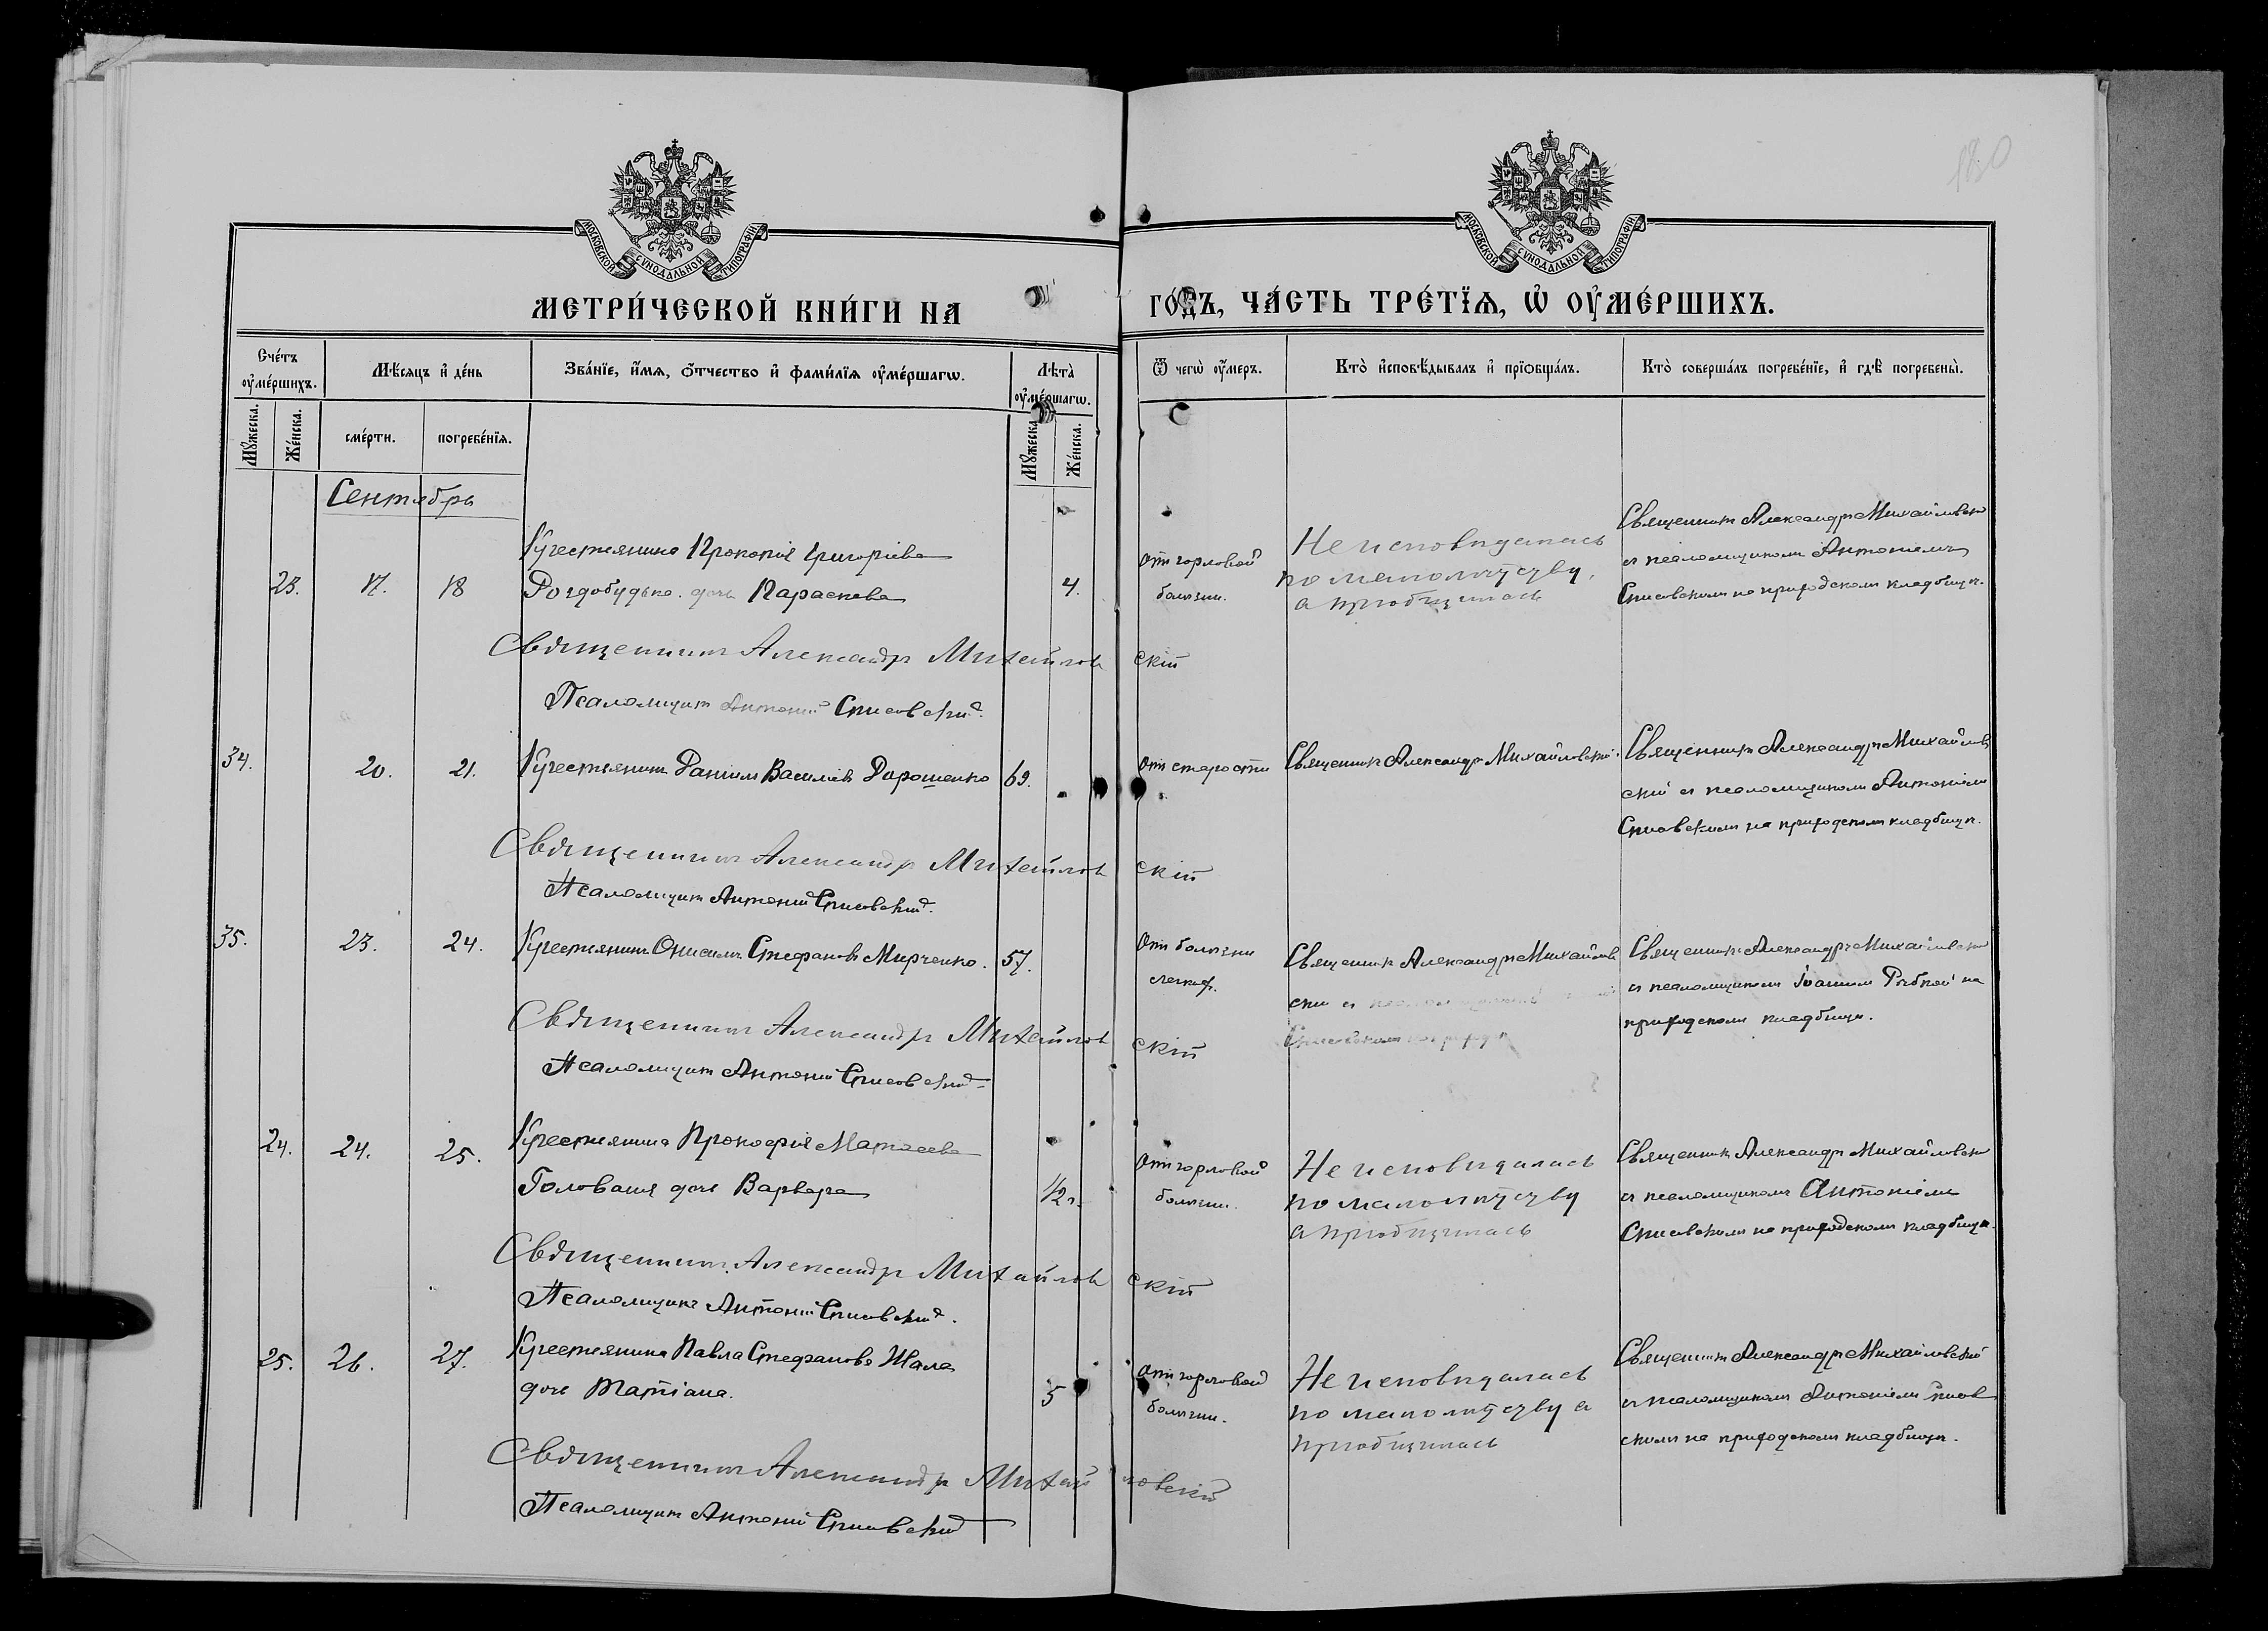 180
МОСКОВСКОЙ СѴНОДАЛЬНОЙ ТИПОГРАФІИ
МОСКОВСКОЙ СѴНОДАЛЬНОЙ ТИПОГРАФІИ
МЕТРИ́ЧЕСКОЙ КНИ́ГИ НА
ГО́ДЪ, ЧА́СТЬ ТРЕ́ТЇѦ, Ѡ҆ ОУ҆МЕ́РШИХЪ.
Сче́тъ оу҆ме́ршихъ.
Мѣ́сяцъ и҆ де́нь
Зва́нїе, и҆́мѧ, ѻ҆́тчество и҆ фами́лїѧ оу҆ме́ршагѡ.
Лѣ́та̀ оу҆ме́ршагѡ.
Ѿ чегѡ̀ оу҆́меръ.
Кто̀ и҆сповѣ́дывалъ и҆ прїѡбща́лъ.
Кто̀ соверша́лъ погребе́нїе, и҆ гдѣ̀ погребены̀.
Мꙋ́жеска.
Же́нска.
сме́рти.
погребе́нїѧ.
Мꙋ́жеска.
Же́нска.
Сентябрь
23. 17. 18
Крестьянина Прокопія Григоріева
Роздобудько дочь Параскева
4.
отъ горловой
болѣзни.
Не исповѣдалась
по малолѣтству,
а пріобщилась
Священникъ Александръ Михайловскій
съ псаломщикомъ Антоніемъ
Списовскимъ на приходскомъ кладбищѣ.
Священникъ Александръ Михайловскій
Псаломщикъ Антоній Списовскій.
34. 20. 21.
Крестьянинъ Даніилъ Василіевъ Дорошенко
69.
Отъ старости
Священникъ Александръ Михайловскій.
Священникъ Александръ Михайлов
скій съ псаломщикомъ Антоніемъ
Списовскимъ на приходскомъ кладбищѣ.
Священникъ Александръ Михайловскій
Псаломщикъ Антоній Списовскій.
35. 23. 24.
Крестьянинъ Онисимъ Стефановъ Мирченко.
57.
Отъ болѣзни
легкихъ.
Священникъ Александръ Михайлов
скій съ
Священникъ Александръ Михайловскій
съ псаломщикомъ Іоанномъ Рыбкой на
приходскомъ кладбищѣ.
Священникъ Александръ Михайловскій
Псаломщикъ Антоній Списовскій
24. 24. 25.
Крестьянина Прокофія Матѳеева
Голованя дочь Варвара
1/2 г.
Отъ горловой
болѣзни.
Не исповѣдалась
по малолѣтству
а пріобщилась
Священникъ Александръ Михайловскій
съ псаломщикомъ Антоніемъ
Списовскимъ на приходскомъ кладбищѣ.
Священникъ Александръ Михайловскій
Псаломщикъ Антоній Списовскій.
25. 26. 27.
Крестьянина Павла Стефанова Шала
дочь Татіана.
5
Отъ горловой
болѣзни.
Не исповѣдалась
по малолѣтству а
пріобщилась
Священникъ Александръ Михайловскій
съ псаломщикомъ Антоніемъ Списов
скимъ на приходскомъ кладбищѣ.
Священникъ Александръ Михайловскій
Псаломщикъ Антоній Списовскій